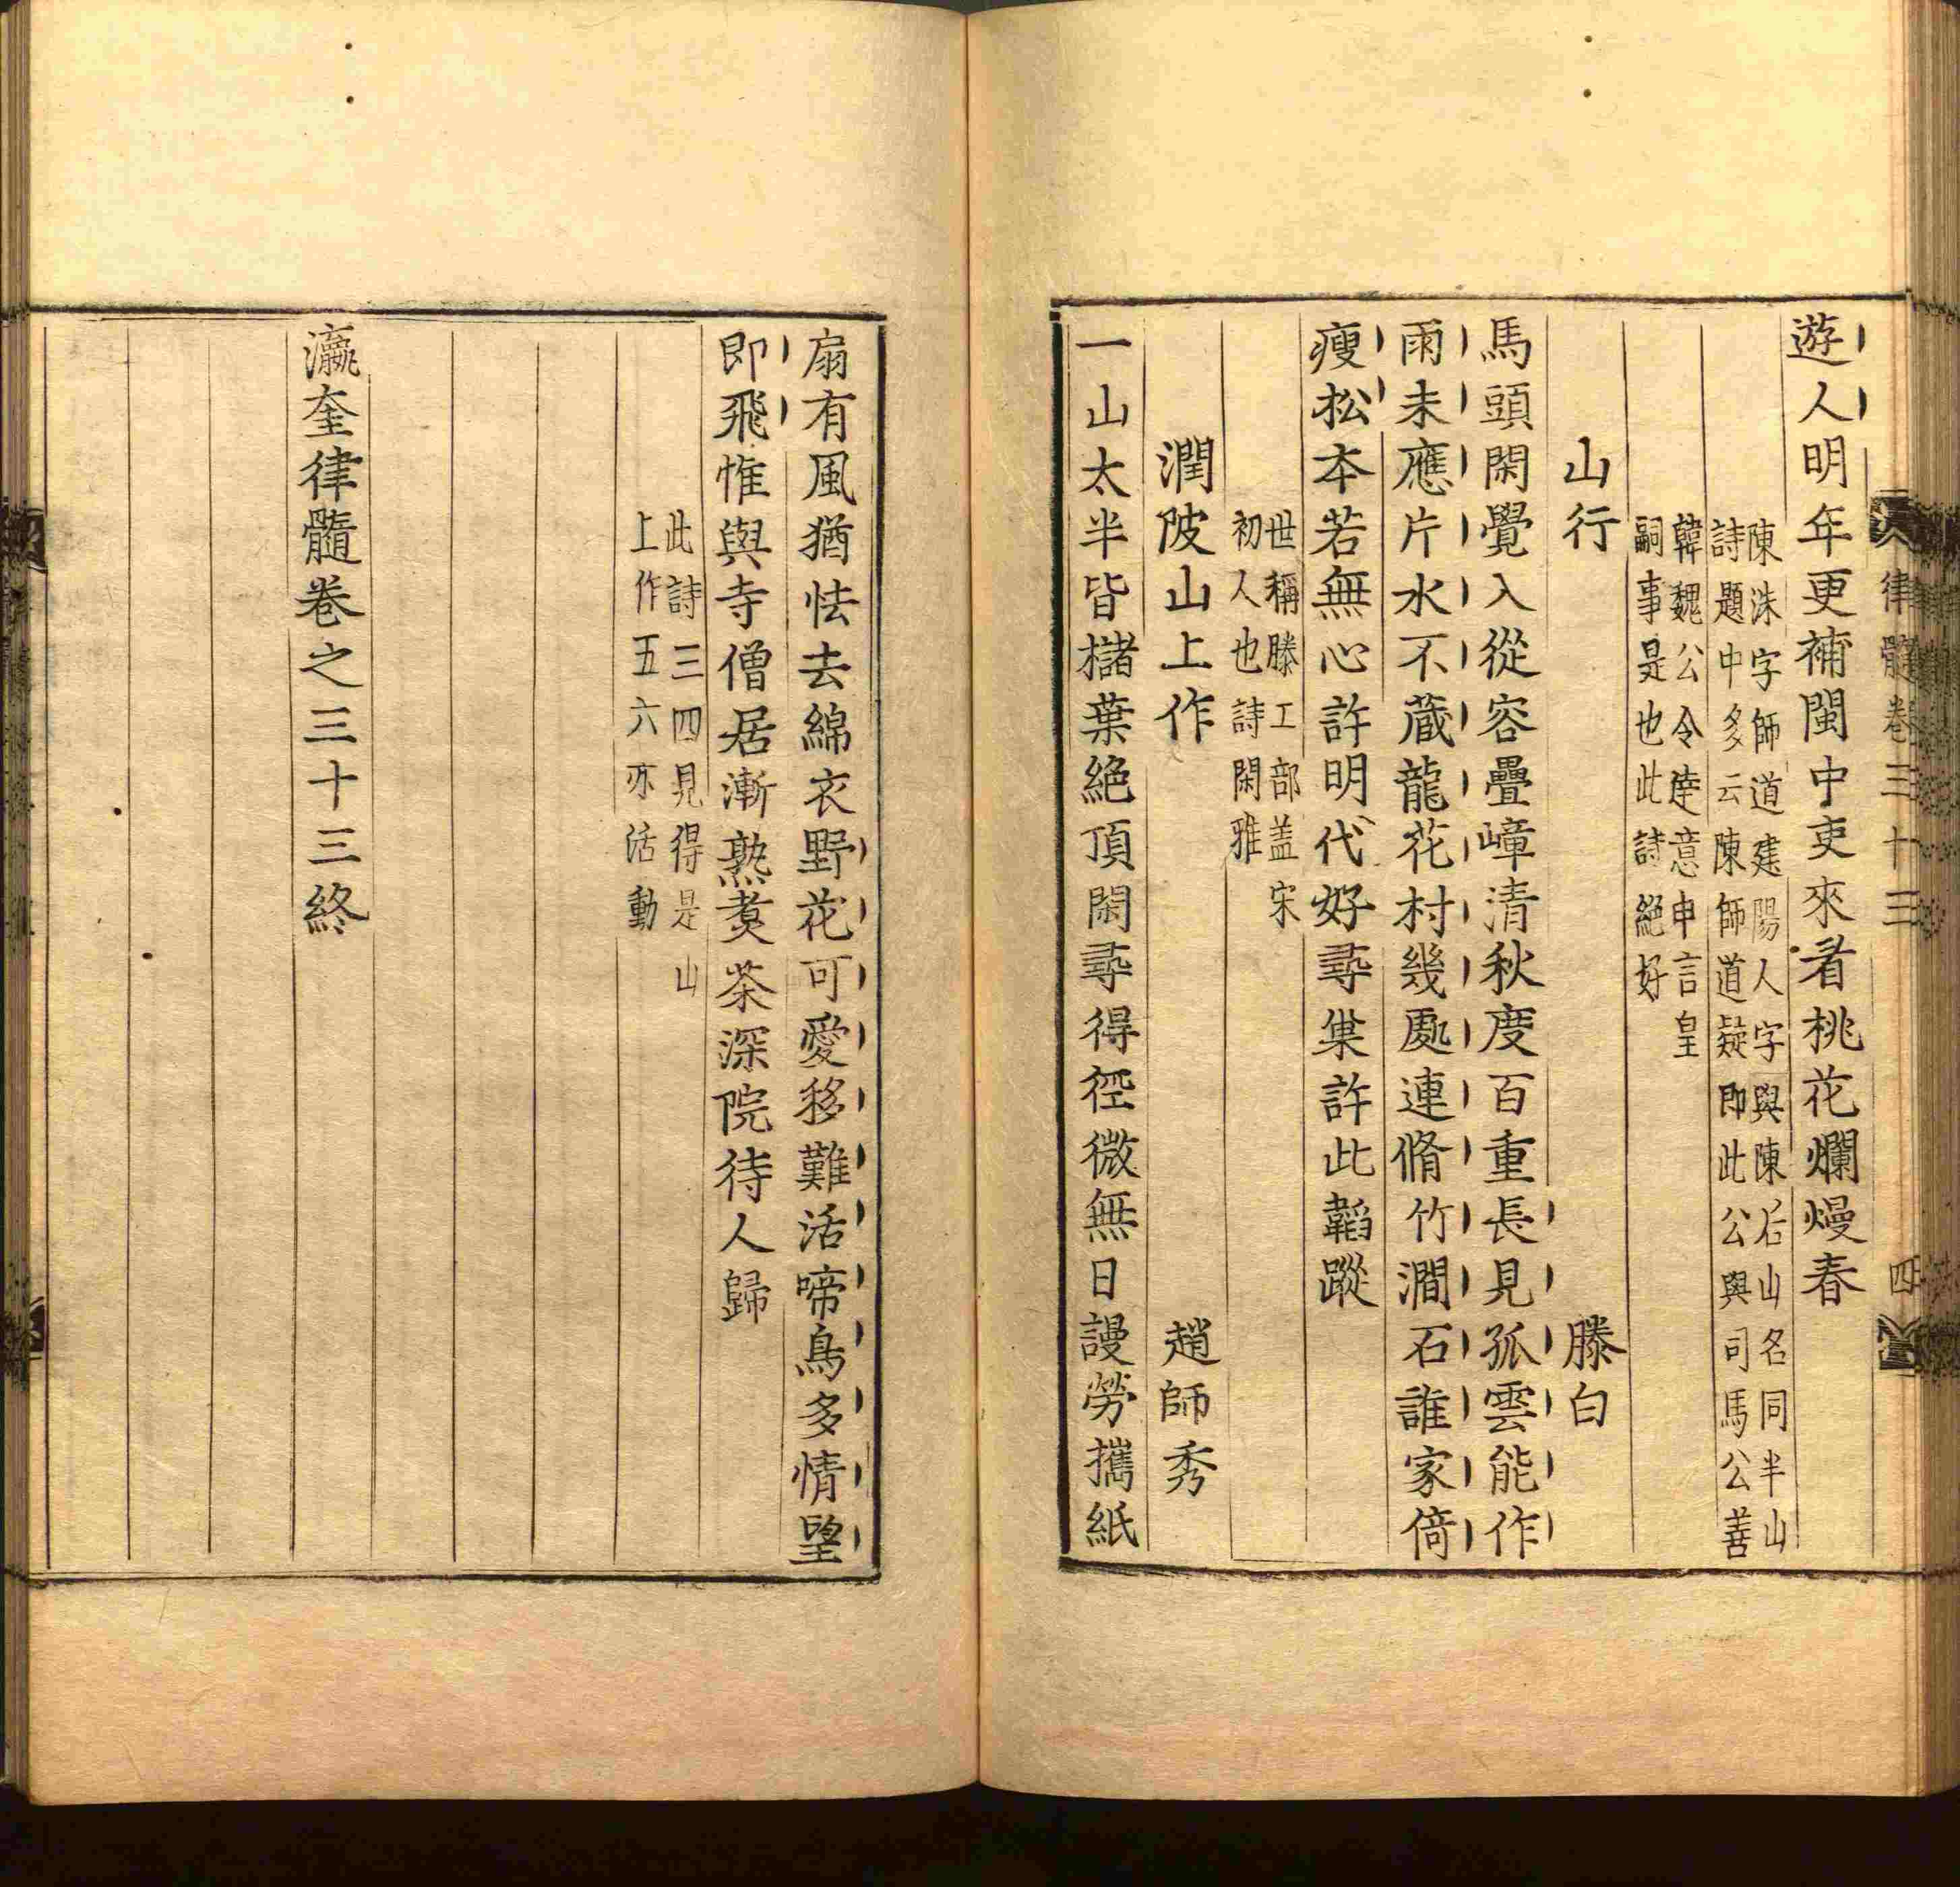 律髓卷三十三
四
遊人明年更補閩中吏來看桃花爛熳春
陳洙字師道建陽人字與陳后山名同半山
詩題中多云陳師道疑即此公與司馬公善
韓魏公令達意申言皇
嗣事是也此詩絕好
山行 滕白
馬頭閑覺入從容疊嶂清秋度百重長見孤雲能作
雨未應片水不蔵龍花村幾處連脩竹澗石誰家倚
瘦松本若無心許明代好尋巢許此韜蹤
世稱滕工部盖宋
初人也詩閑雅
潤陂山上作 趙師秀
一山太半皆櫧葉絕頂閑尋得徑微無日謾勞攜紙
扇有風猶怯去綿衣野花可愛移難活啼鳥多情望
即飛惟與寺僧居漸熟煑茶深院待人歸
此詩三四見得是山
上作五六亦活動
瀛奎律髓卷之三十三終